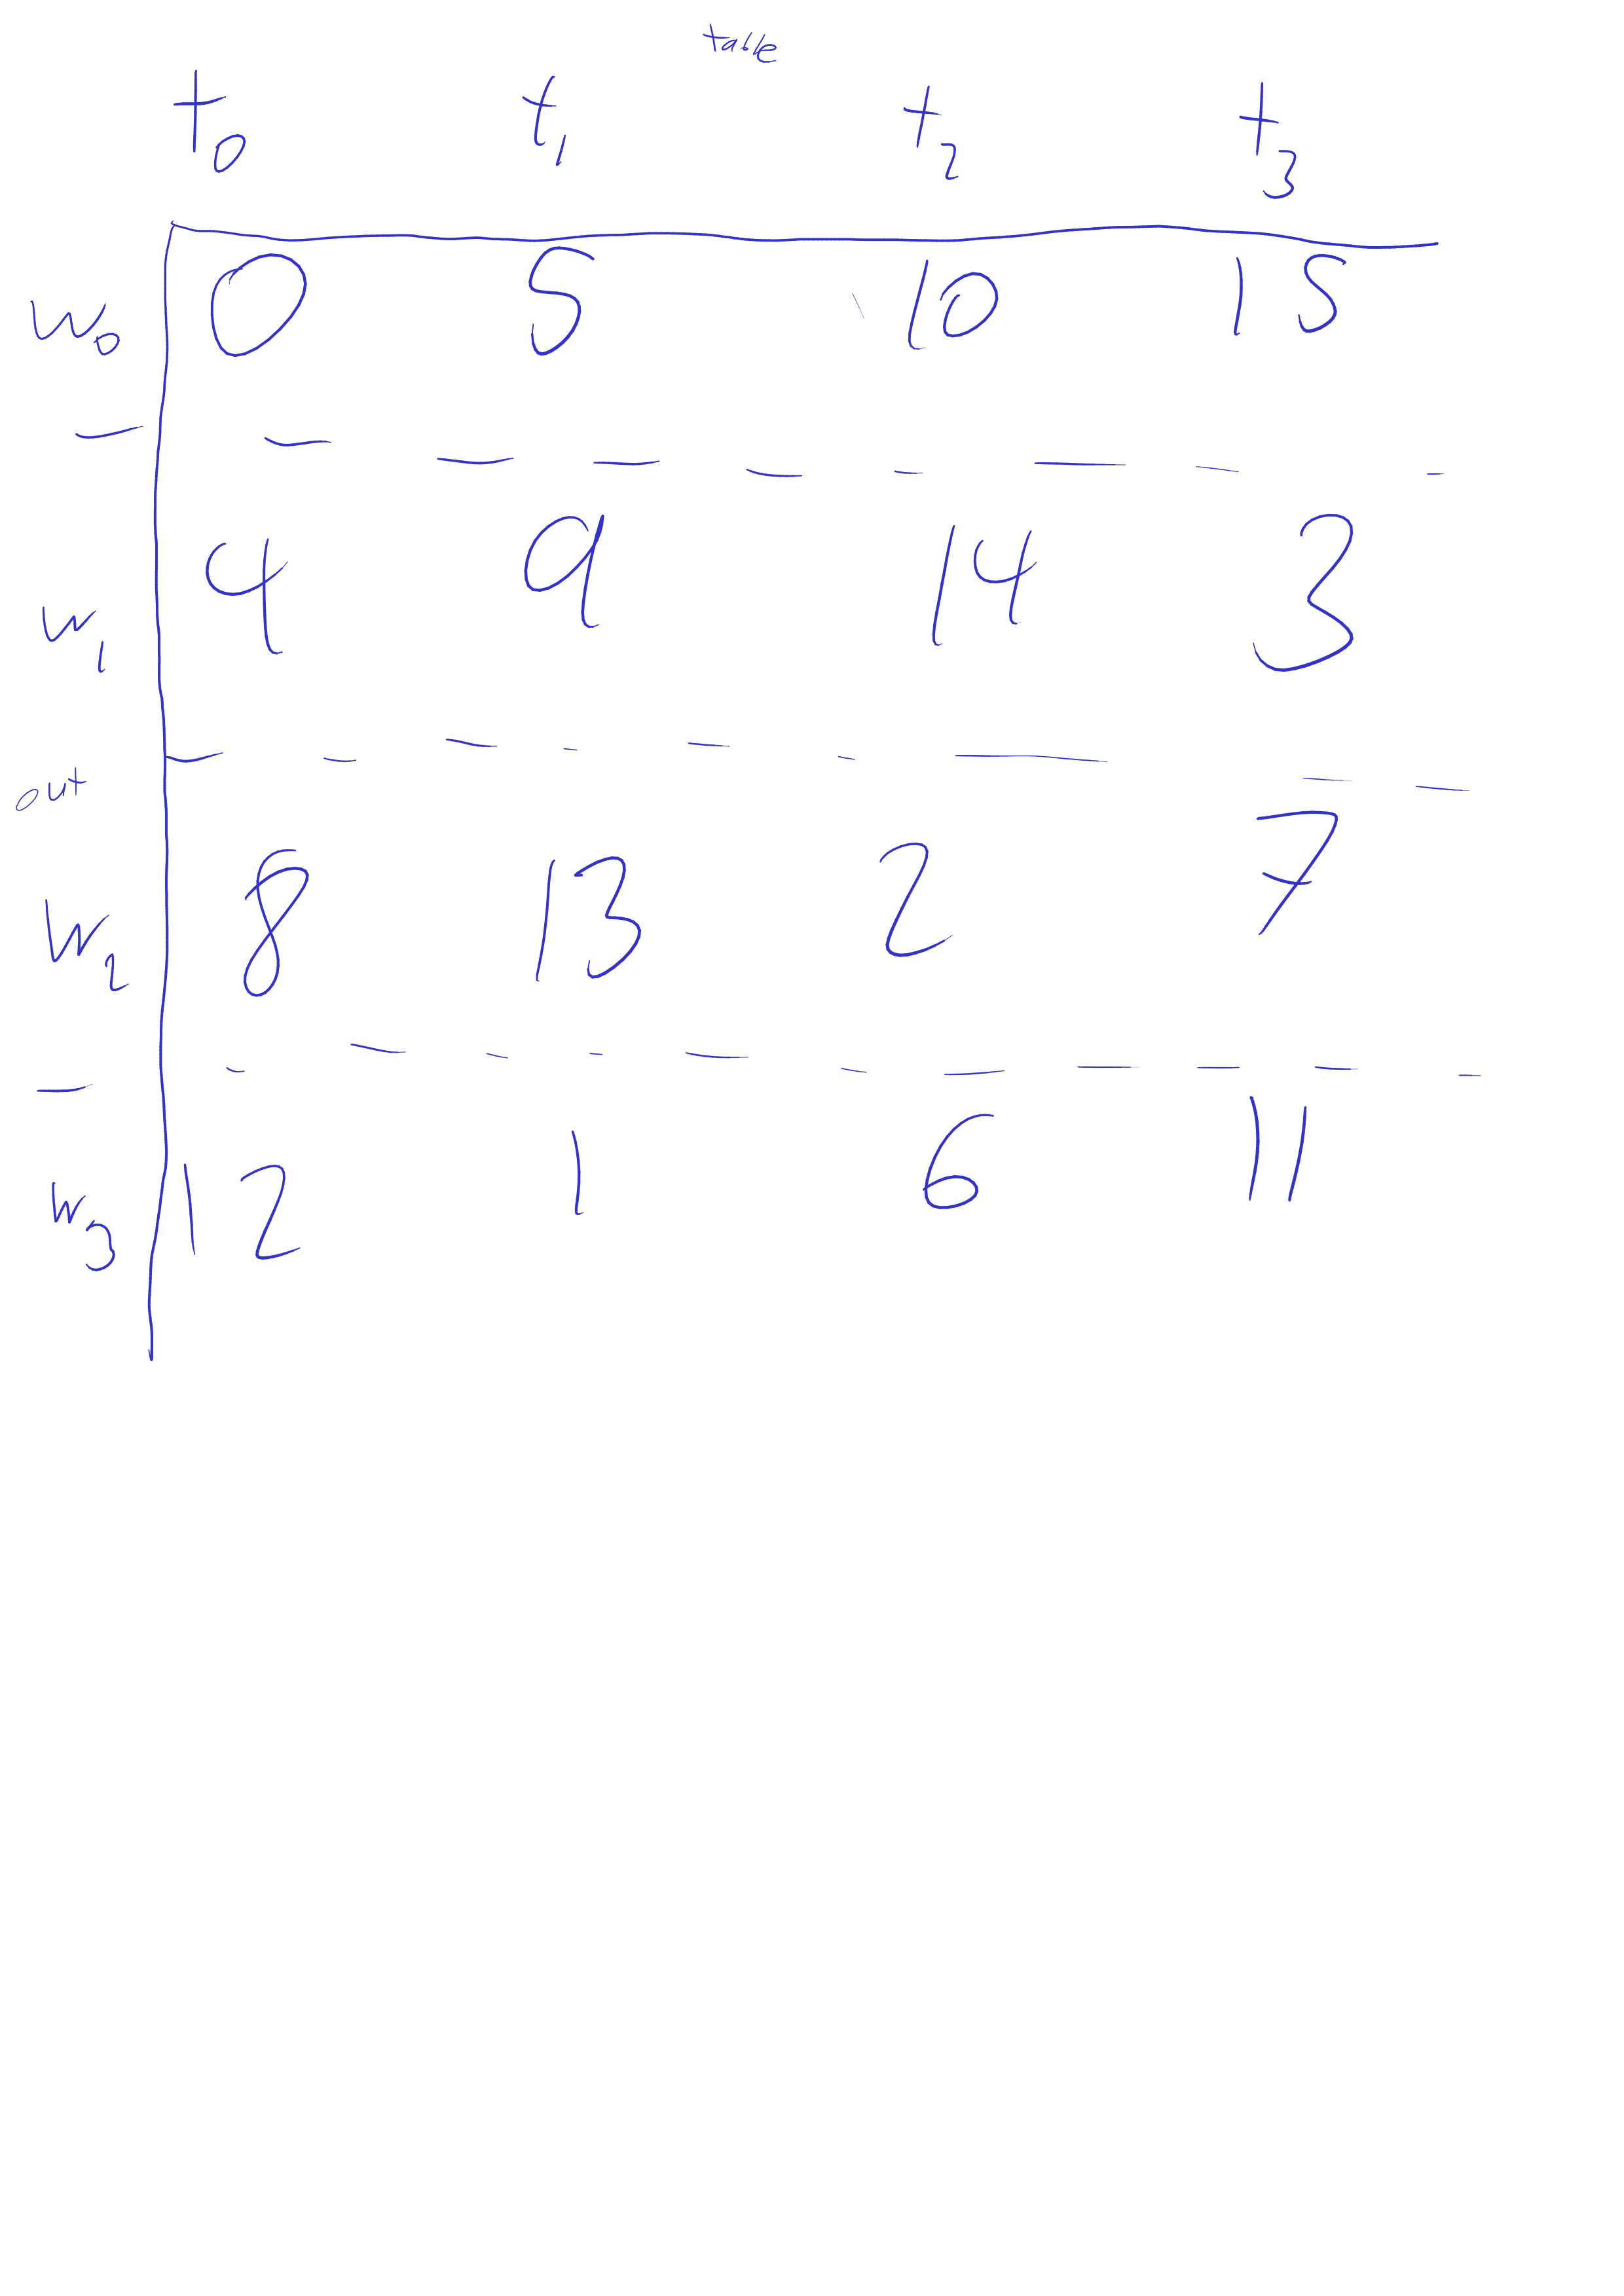 table
t₀ t₁ t₂ t₃
w₀ 0 5 10 15
w₁ 4 9 14 3
out
w₂ 8 13 2 7
w₃ 12 1 6 11